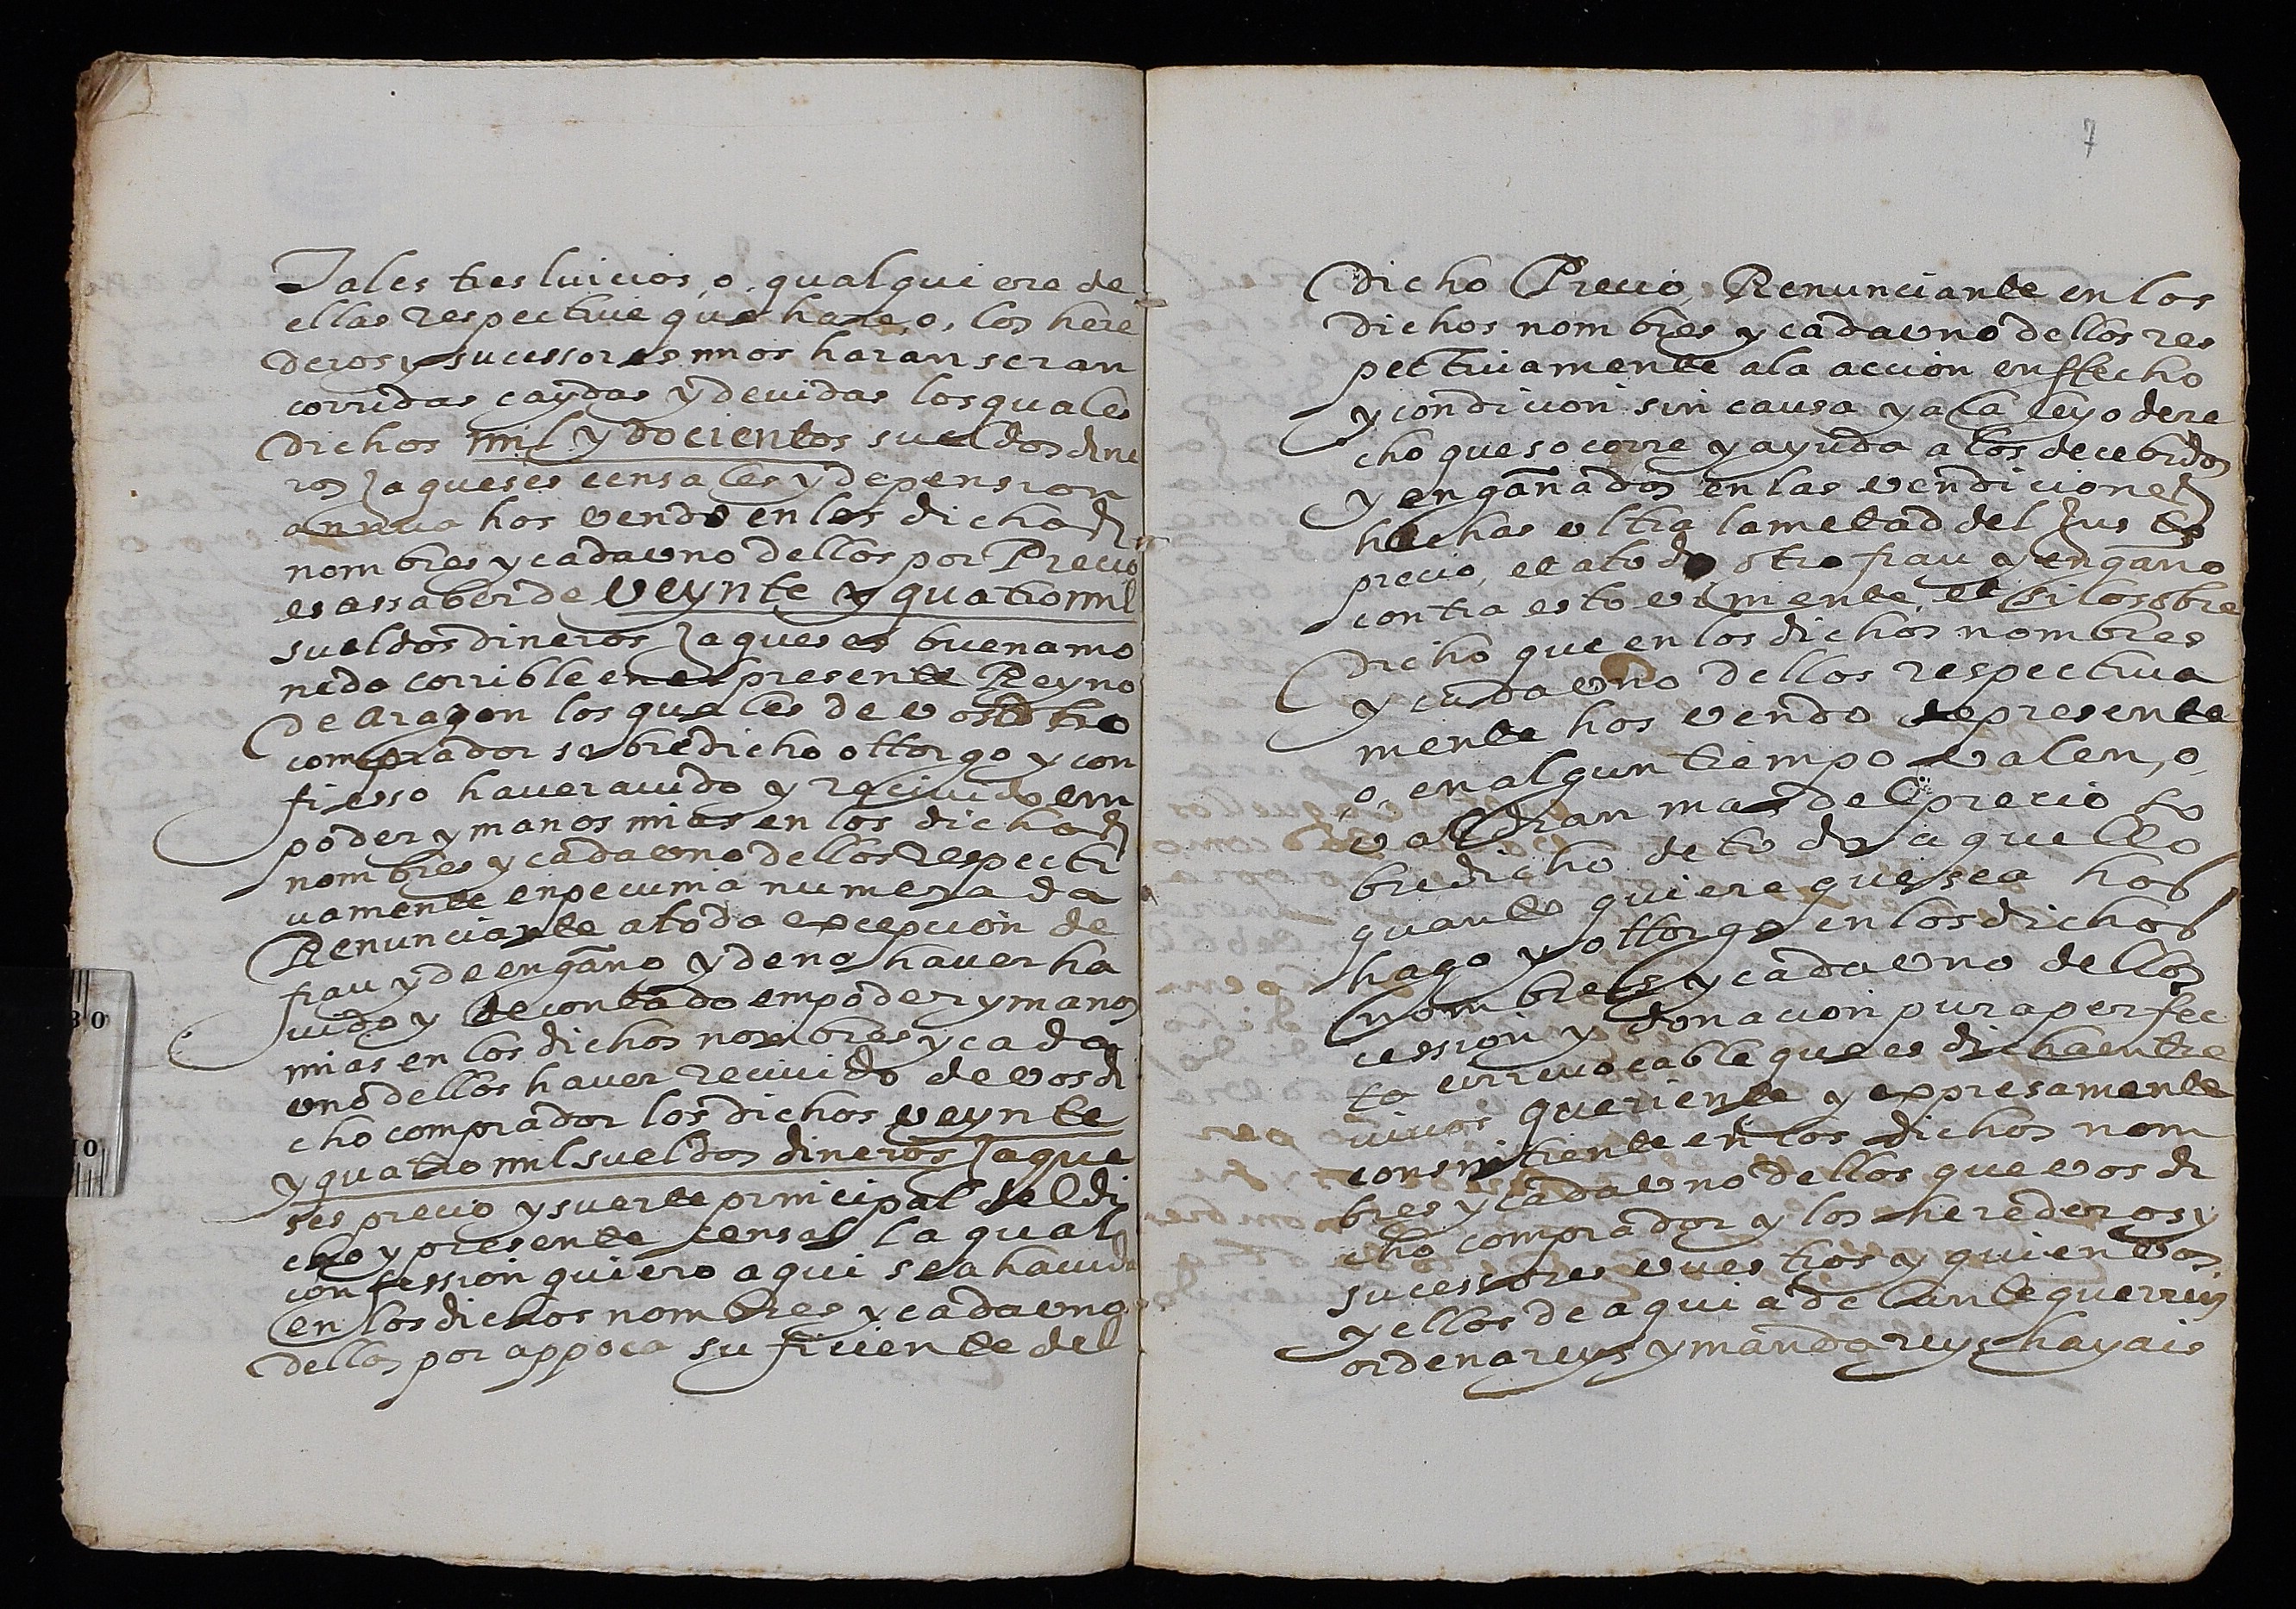 Tales tres luicios, o, qualquiere de
ellas respective que hare, o, los here
deros y sucessores mios haran seran
corridas caydas y devidas los quales
Dichos mil y docientos sueldos dine
ros Jaqueses censales y de pension
annua hos vendo en los dichos
nombres y cada uno dellos por Precio
es assaber de veynte y quatro mil
sueldos dineros Jaqueses buena mo
neda corrible en el presente Reyno
de Aragon los quales de vos
comprador sobredicho ottorgo y con
fiesso haver avido y recivido em
poder y manos mias en los dichos
nombres y cada uno dellos respecti
vamente en pecunia numerada
Renunciante a toda excepcion de
frau y de engaño y de no haver ha
vido y de contado em poder y manos
mias en los dichos nombres y cada
uno dellos haver recivido de vos di
cho comprador los dichos veynte
y quatro mil sueldos dineros Jaque
ses precio y suerte principal del di
cho y presente censal la qual
confession quiero aqui sea havida
en los dichos nombres y cada uno
dellos por appoca suficiente del
7
Dicho Precio, Renunciante en los
dichos nombres y cada uno dellos res
pectivamente a la accion en ffecho
y condicion sin causa y a la ley o dere
cho que socorre y ayuda a los decebidos
y engañados en las vendiciones
hechas ultra la metad del Justo
precio, et a todo otro frau y engaño
contra esto vilmente, et si lo sobre
Dicho que en los dichos nombres
y cada uno dellos respectiva
mente hos vendo de presente
o, en algun tiempo valen, o,
valdran mas del precio so
bredicho de todo aquello
quanto quiere que sea hos
hago y ottorgo en los dichos
nombres y cada uno dellos
cession y donacion pura perfec
ta irrevocable que es dicha entre
vivos queriente y expresamente
consintiente en los dichos nom
bres y cada uno dellos que vos di
cho comprador y los herederos y
sucessores vuestros y quien vos
y ellos de aqui adelante querreis
ordenareys y mandareys hayais